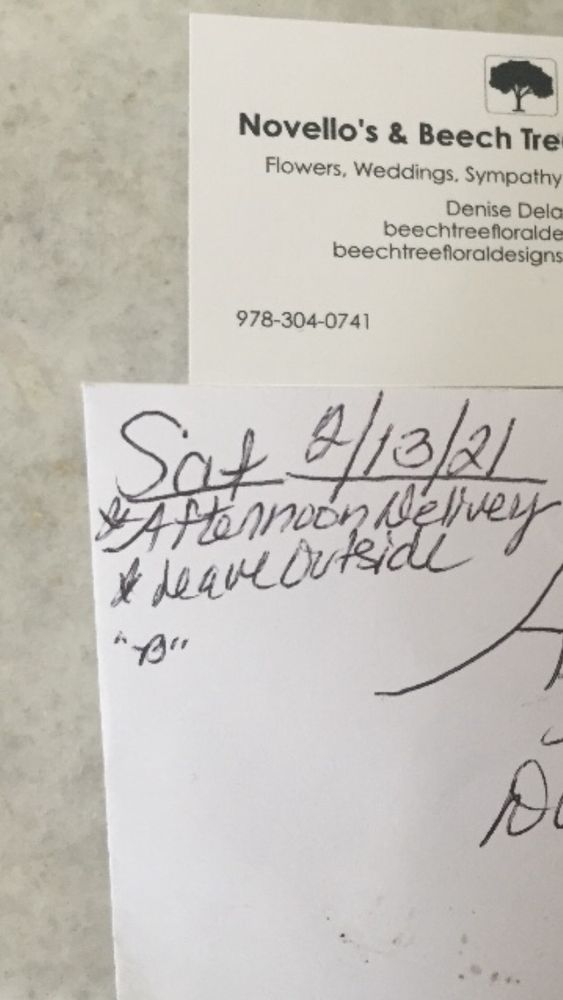 Novello's & Beech Tre
Flowers, Weddings, Sympathy
Denise Dela
beechtreefloralde
beechtreefloraldesigns
978-304-0741
Sat 2/13/21
* Afternoon Delivery
* Leave Outside
"B"